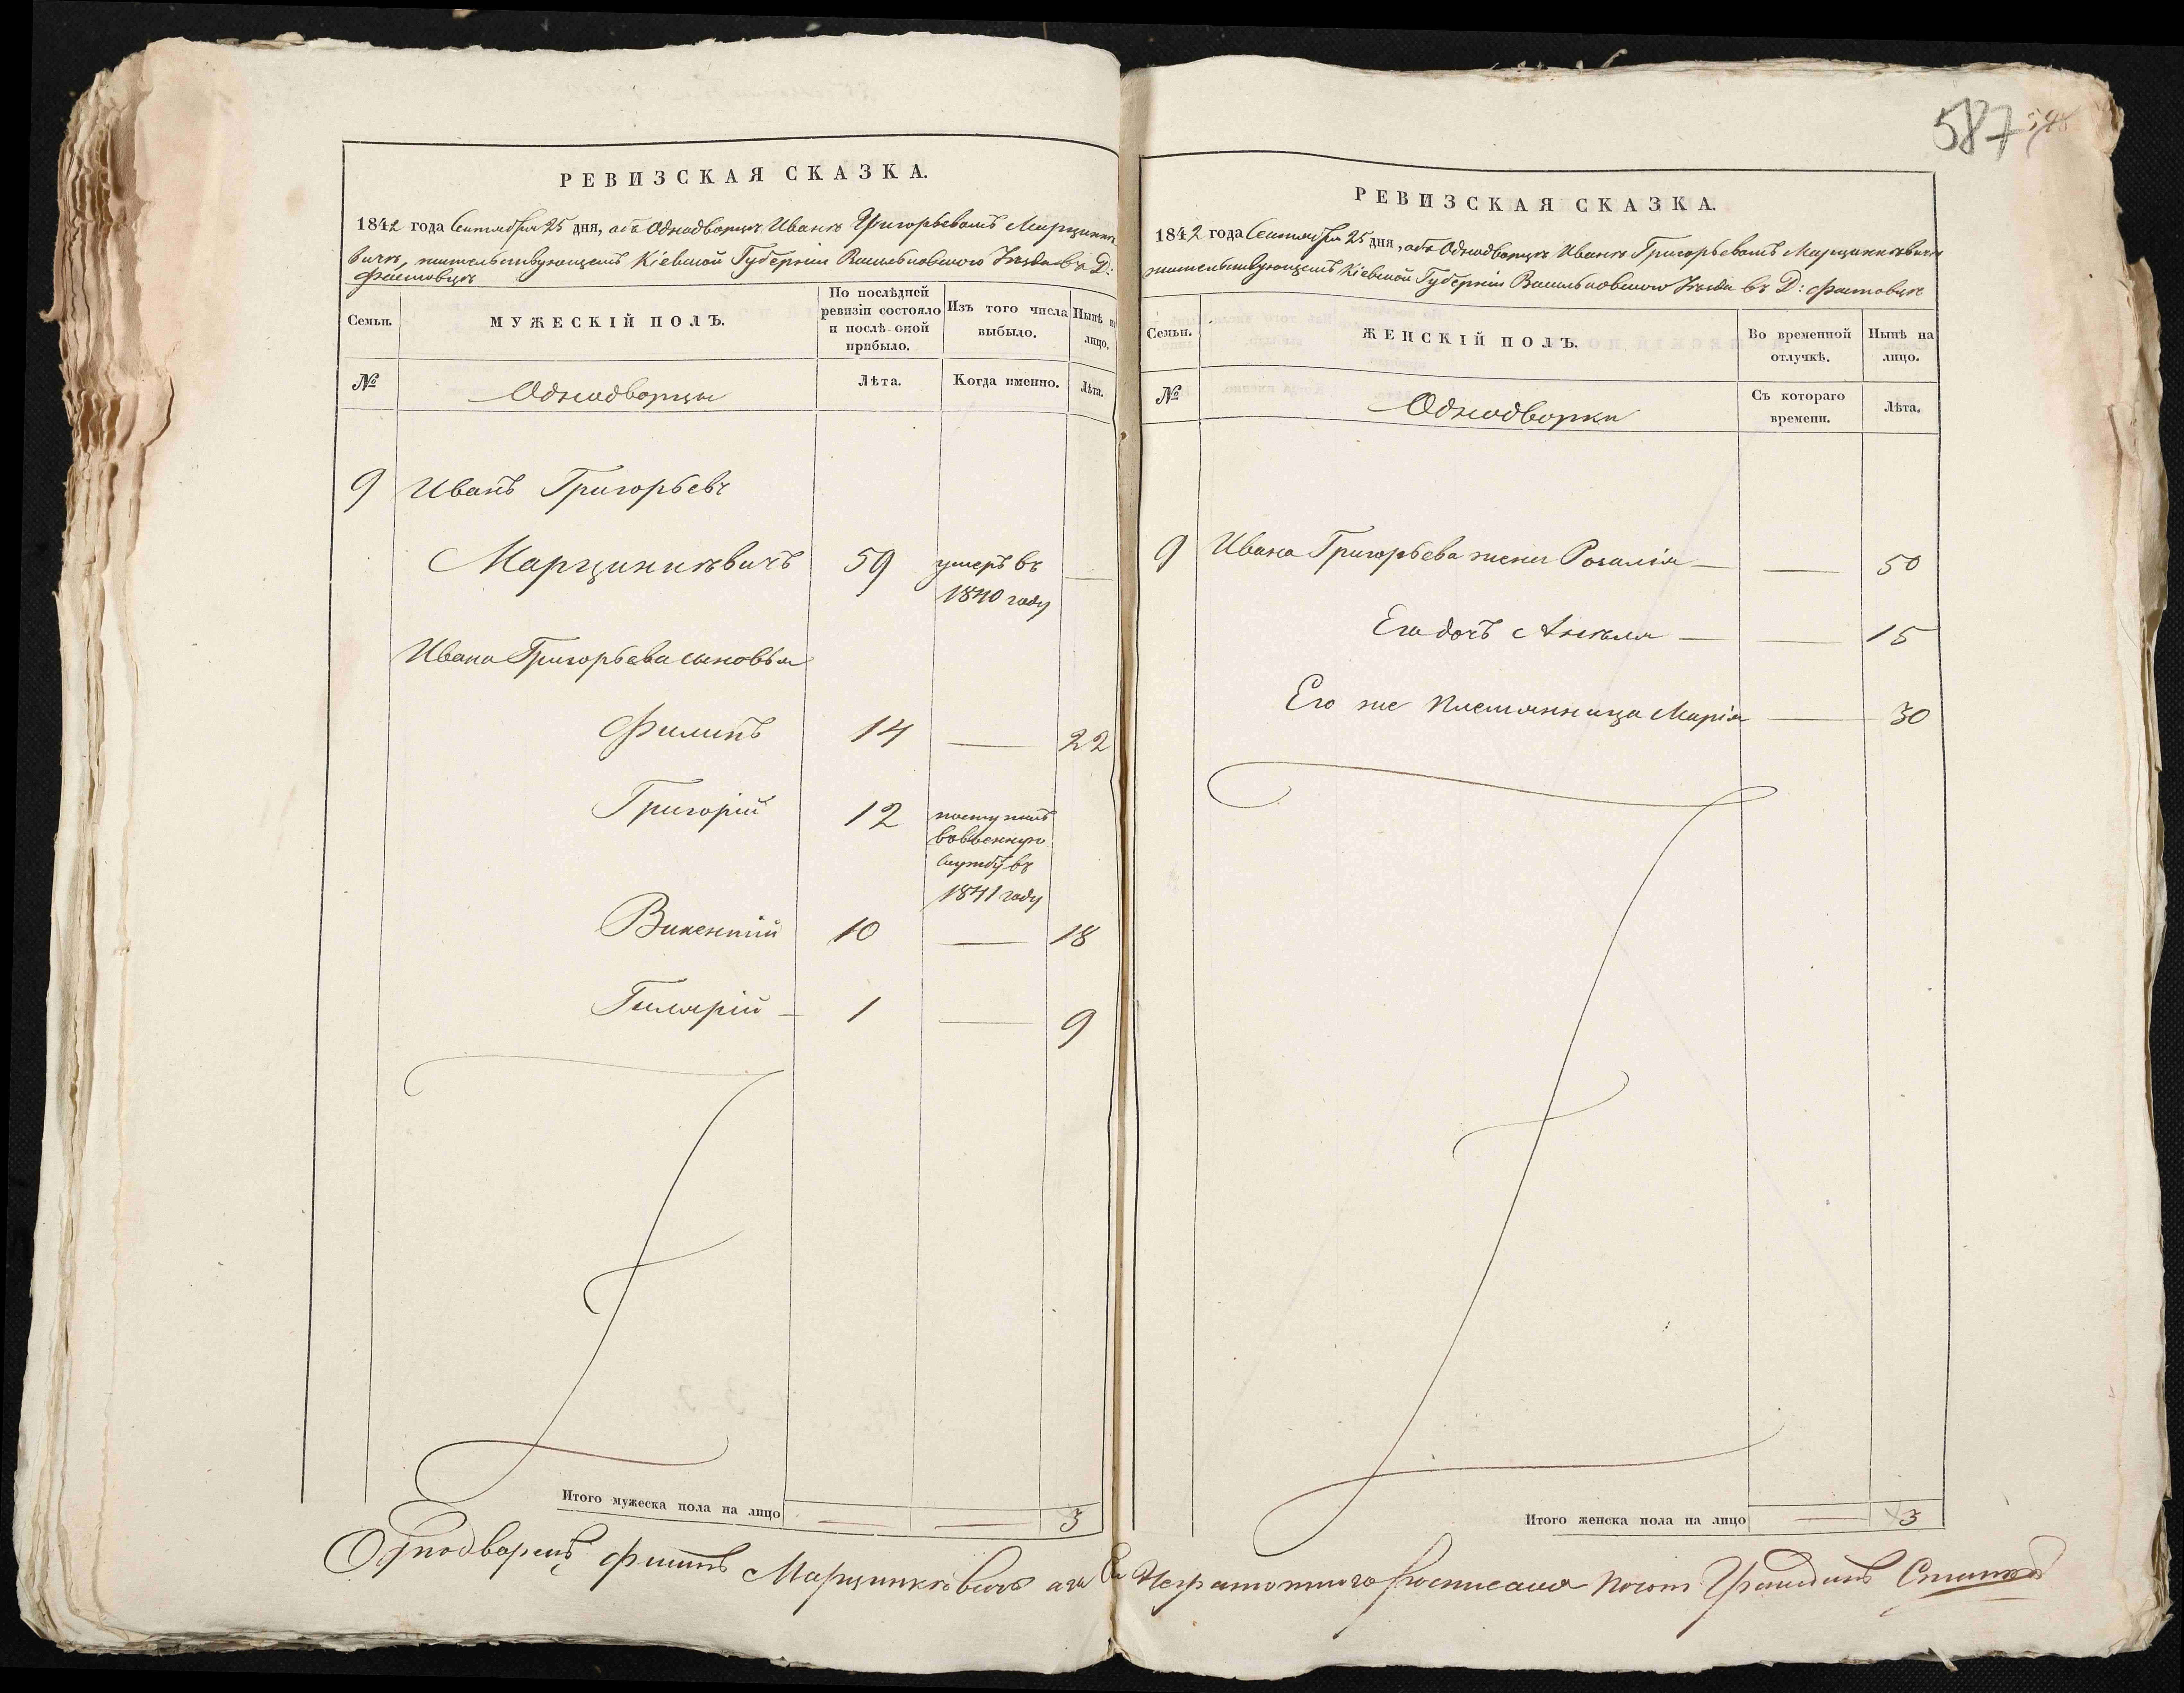 РЕВИЗСКАЯ СКАЗКА.
1842 года Сентября 25 дня, объ Однодворцѣ Иванѣ Григорьевомъ Марцинкѣ
вичѣ, жительствующемъ Кіевской Губерніи Васильковского Уѣзда въ Д:
Фастовцѣ
Семьи.
МУЖЕСКІЙ ПОЛЪ.
По послѣдней ревизіи состояло и послѣ оной прибыло.
Изъ того числа выбыло.
Нынѣ на лицо.
№
Однодворцы
Лѣта.
Когда именно.
Лѣта.
9 Иванъ Григорьевъ
Марцинкѣвичъ 59 умеръ въ
1840 году
Ивана Григорьева сыновья
Филипъ 14 — 22
Григорій 12 поступилъ
въ военную
службу въ
1841 году
Викентій 10 — 18
Гилярій — 1 — 9
Итого мужеска пола на лицо — — 3
Однодворецъ Филипъ Марцинкѣвичъ а за Его Неграмотного росписался почот Гражданинъ
587
РЕВИЗСКАЯ СКАЗКА.
1842 года Сентября 25 дня, объ Однодворцѣ Иванѣ Григорьевомъ Марцинкѣвичѣ
жительствующемъ Кіевской Губерніи Васильковского Уѣзда въ Д: Фастовцѣ
Семьи.
ЖЕНСКІЙ ПОЛЪ.
Во временной отлучкѣ.
Нынѣ на лицо.
№
Однодворки
Съ котораго времени.
Лѣта.
9 Ивана Григорьева жена Розалія — — 50
Его дочь Анѣля — — 15
Его же племянница Марія — 30
Итого женска пола на лицо — 3